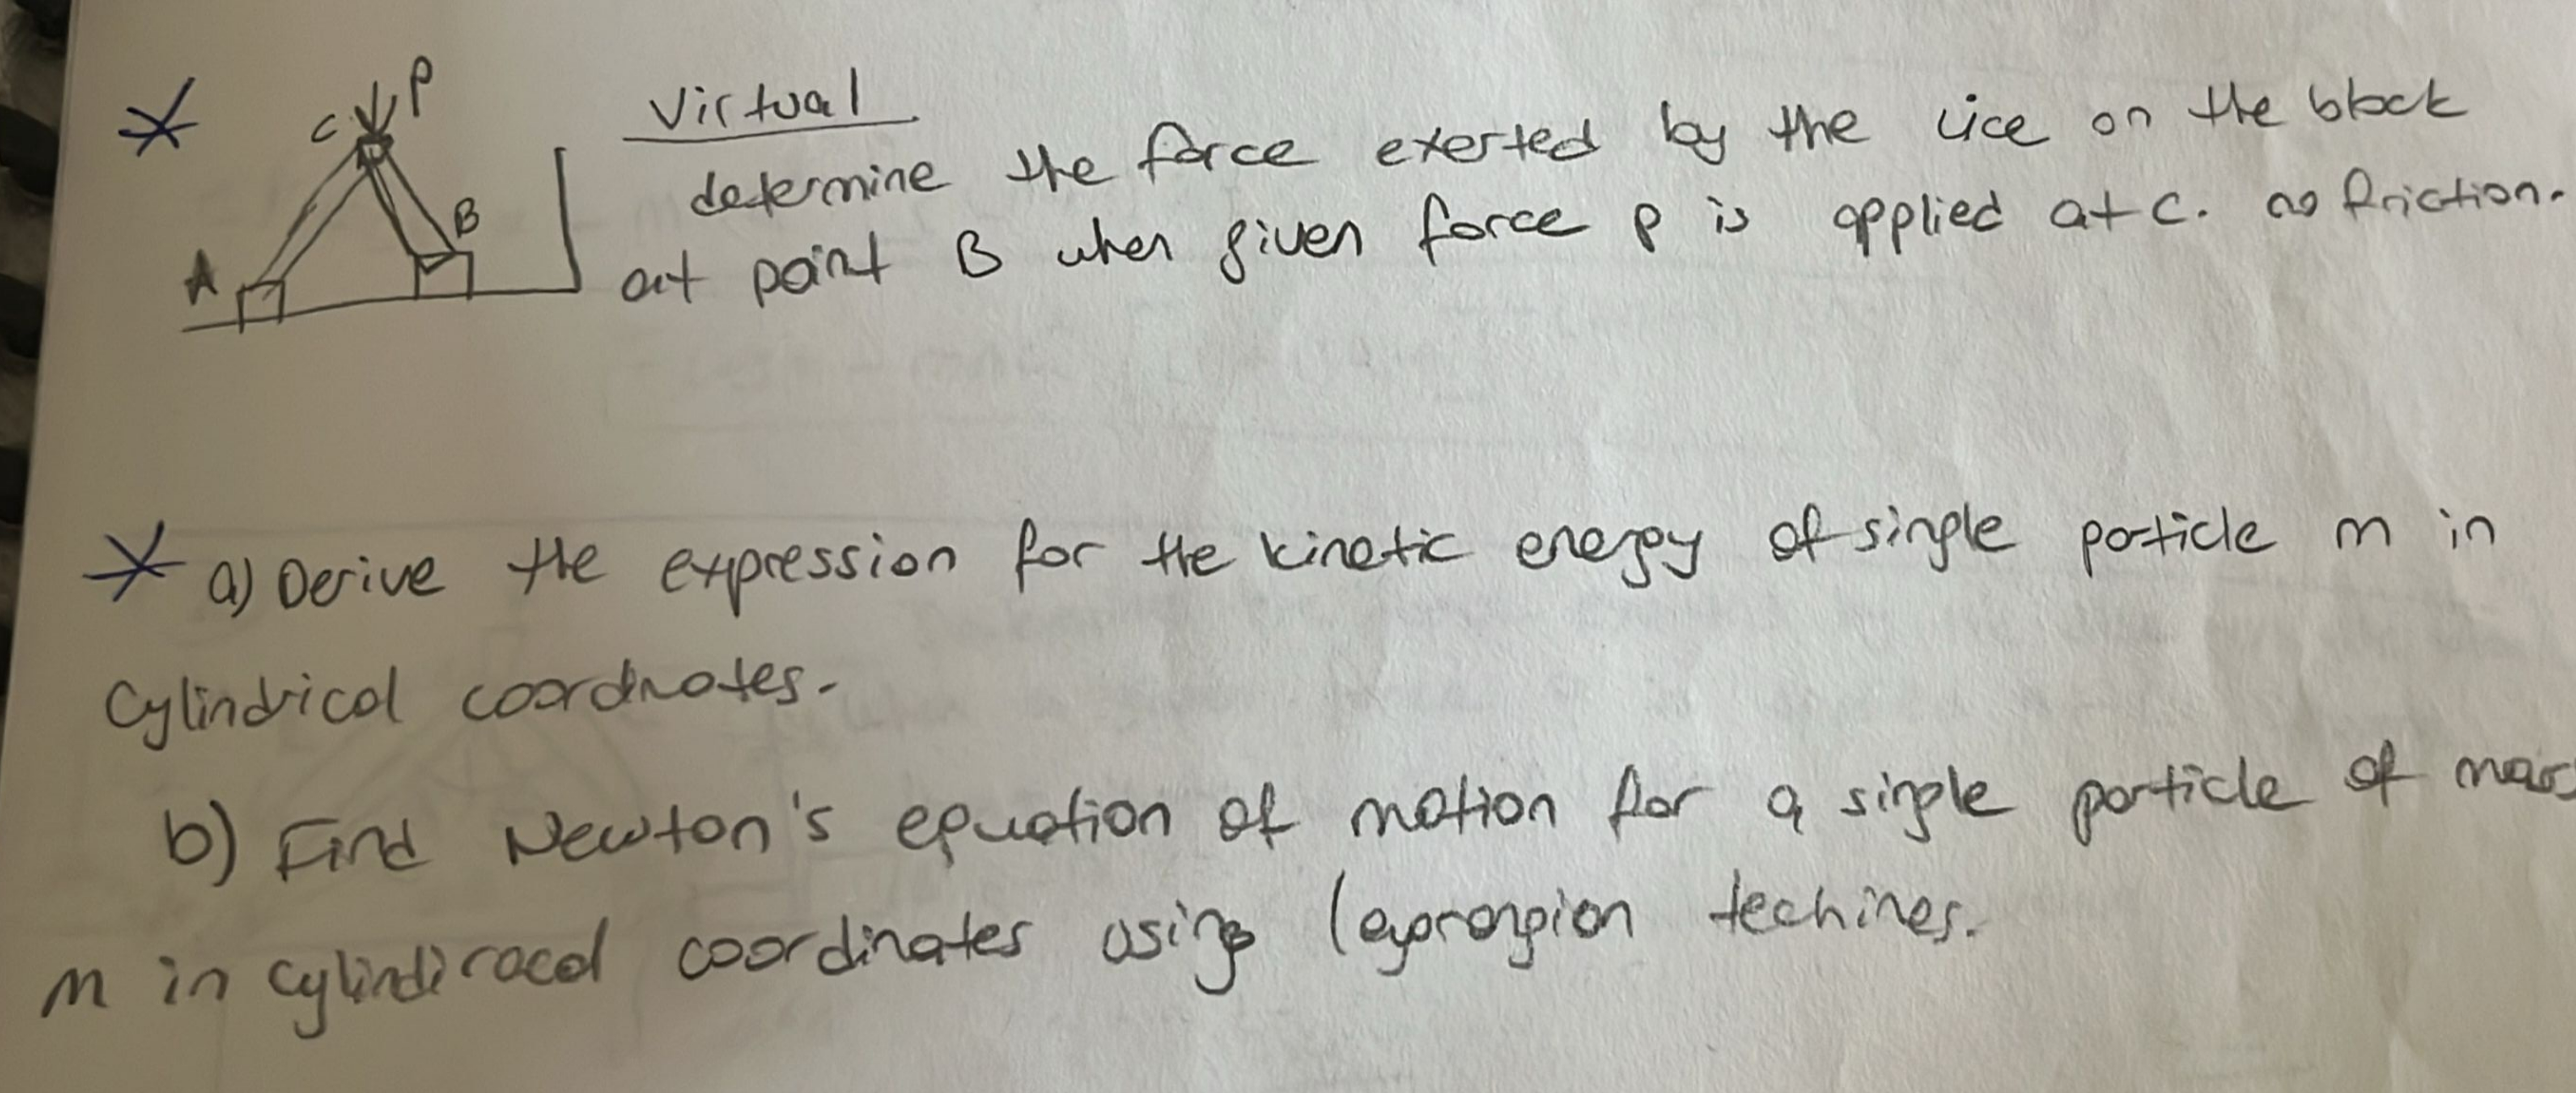 P
C
Virtual
determine the force exerted by the vice on the block
B
A
at point B when given force P is applied at C. no friction.
a) Derive the expression for the kinetic energy of single particle m in
Cylindrical coordnates.
b) Find Newton's equation of motion for a single particle of mass
m in cylindiracal coordinates using